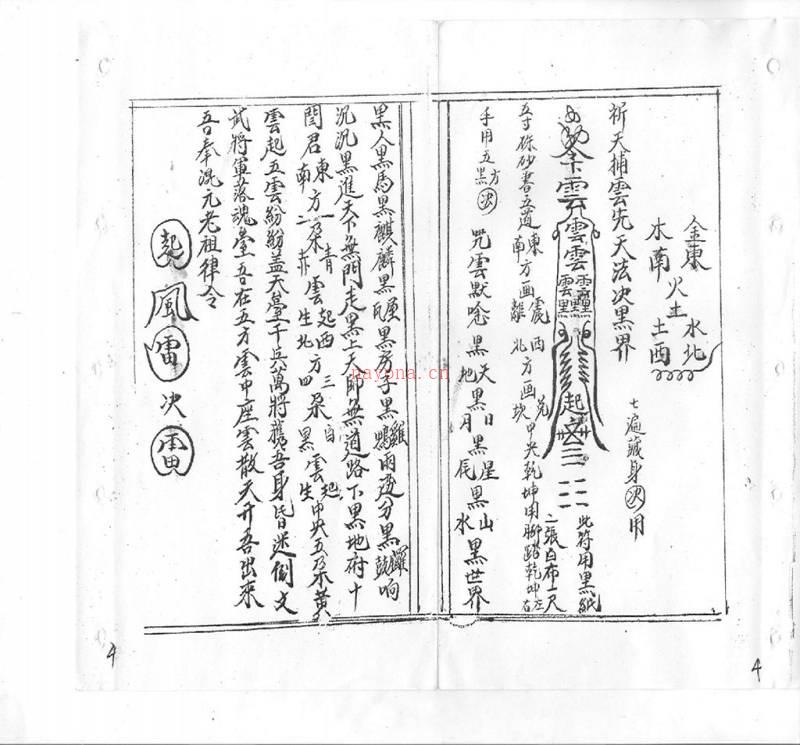 金東 水北
火土
水南 土西
七遍藏身决用
祈天捕雲先天法决黑界
雲
雲雲
起
此符用黑紙
二張白布一尺
五寸硃砂書五道東方画震西兌
南方画離北方画坎中央乾坤用腳踏乾坤左右
手用五方黑决
咒雲默唸黑天黑日黑星黑山
地月辰水黑世界
黑人黑馬黑麒麟黑瓦屋黑房子黑鴨雞兩邊分黑鼓鑼响
沉沉黑進天下無門走黑上天師無道路下黑地府十
閻君東方一朵青雲起西方三朵白雲起中央五朵黃
南方二朵赤雲生北方四朵黑雲生
雲起五雲紛紛盖天臺千兵萬將携吾身皆迷倒文
武將軍落魂臺吾在五方雲中座雲散天开吾出來
吾奉混元老祖律令
起風雷决雷
nayona.cn
4
4